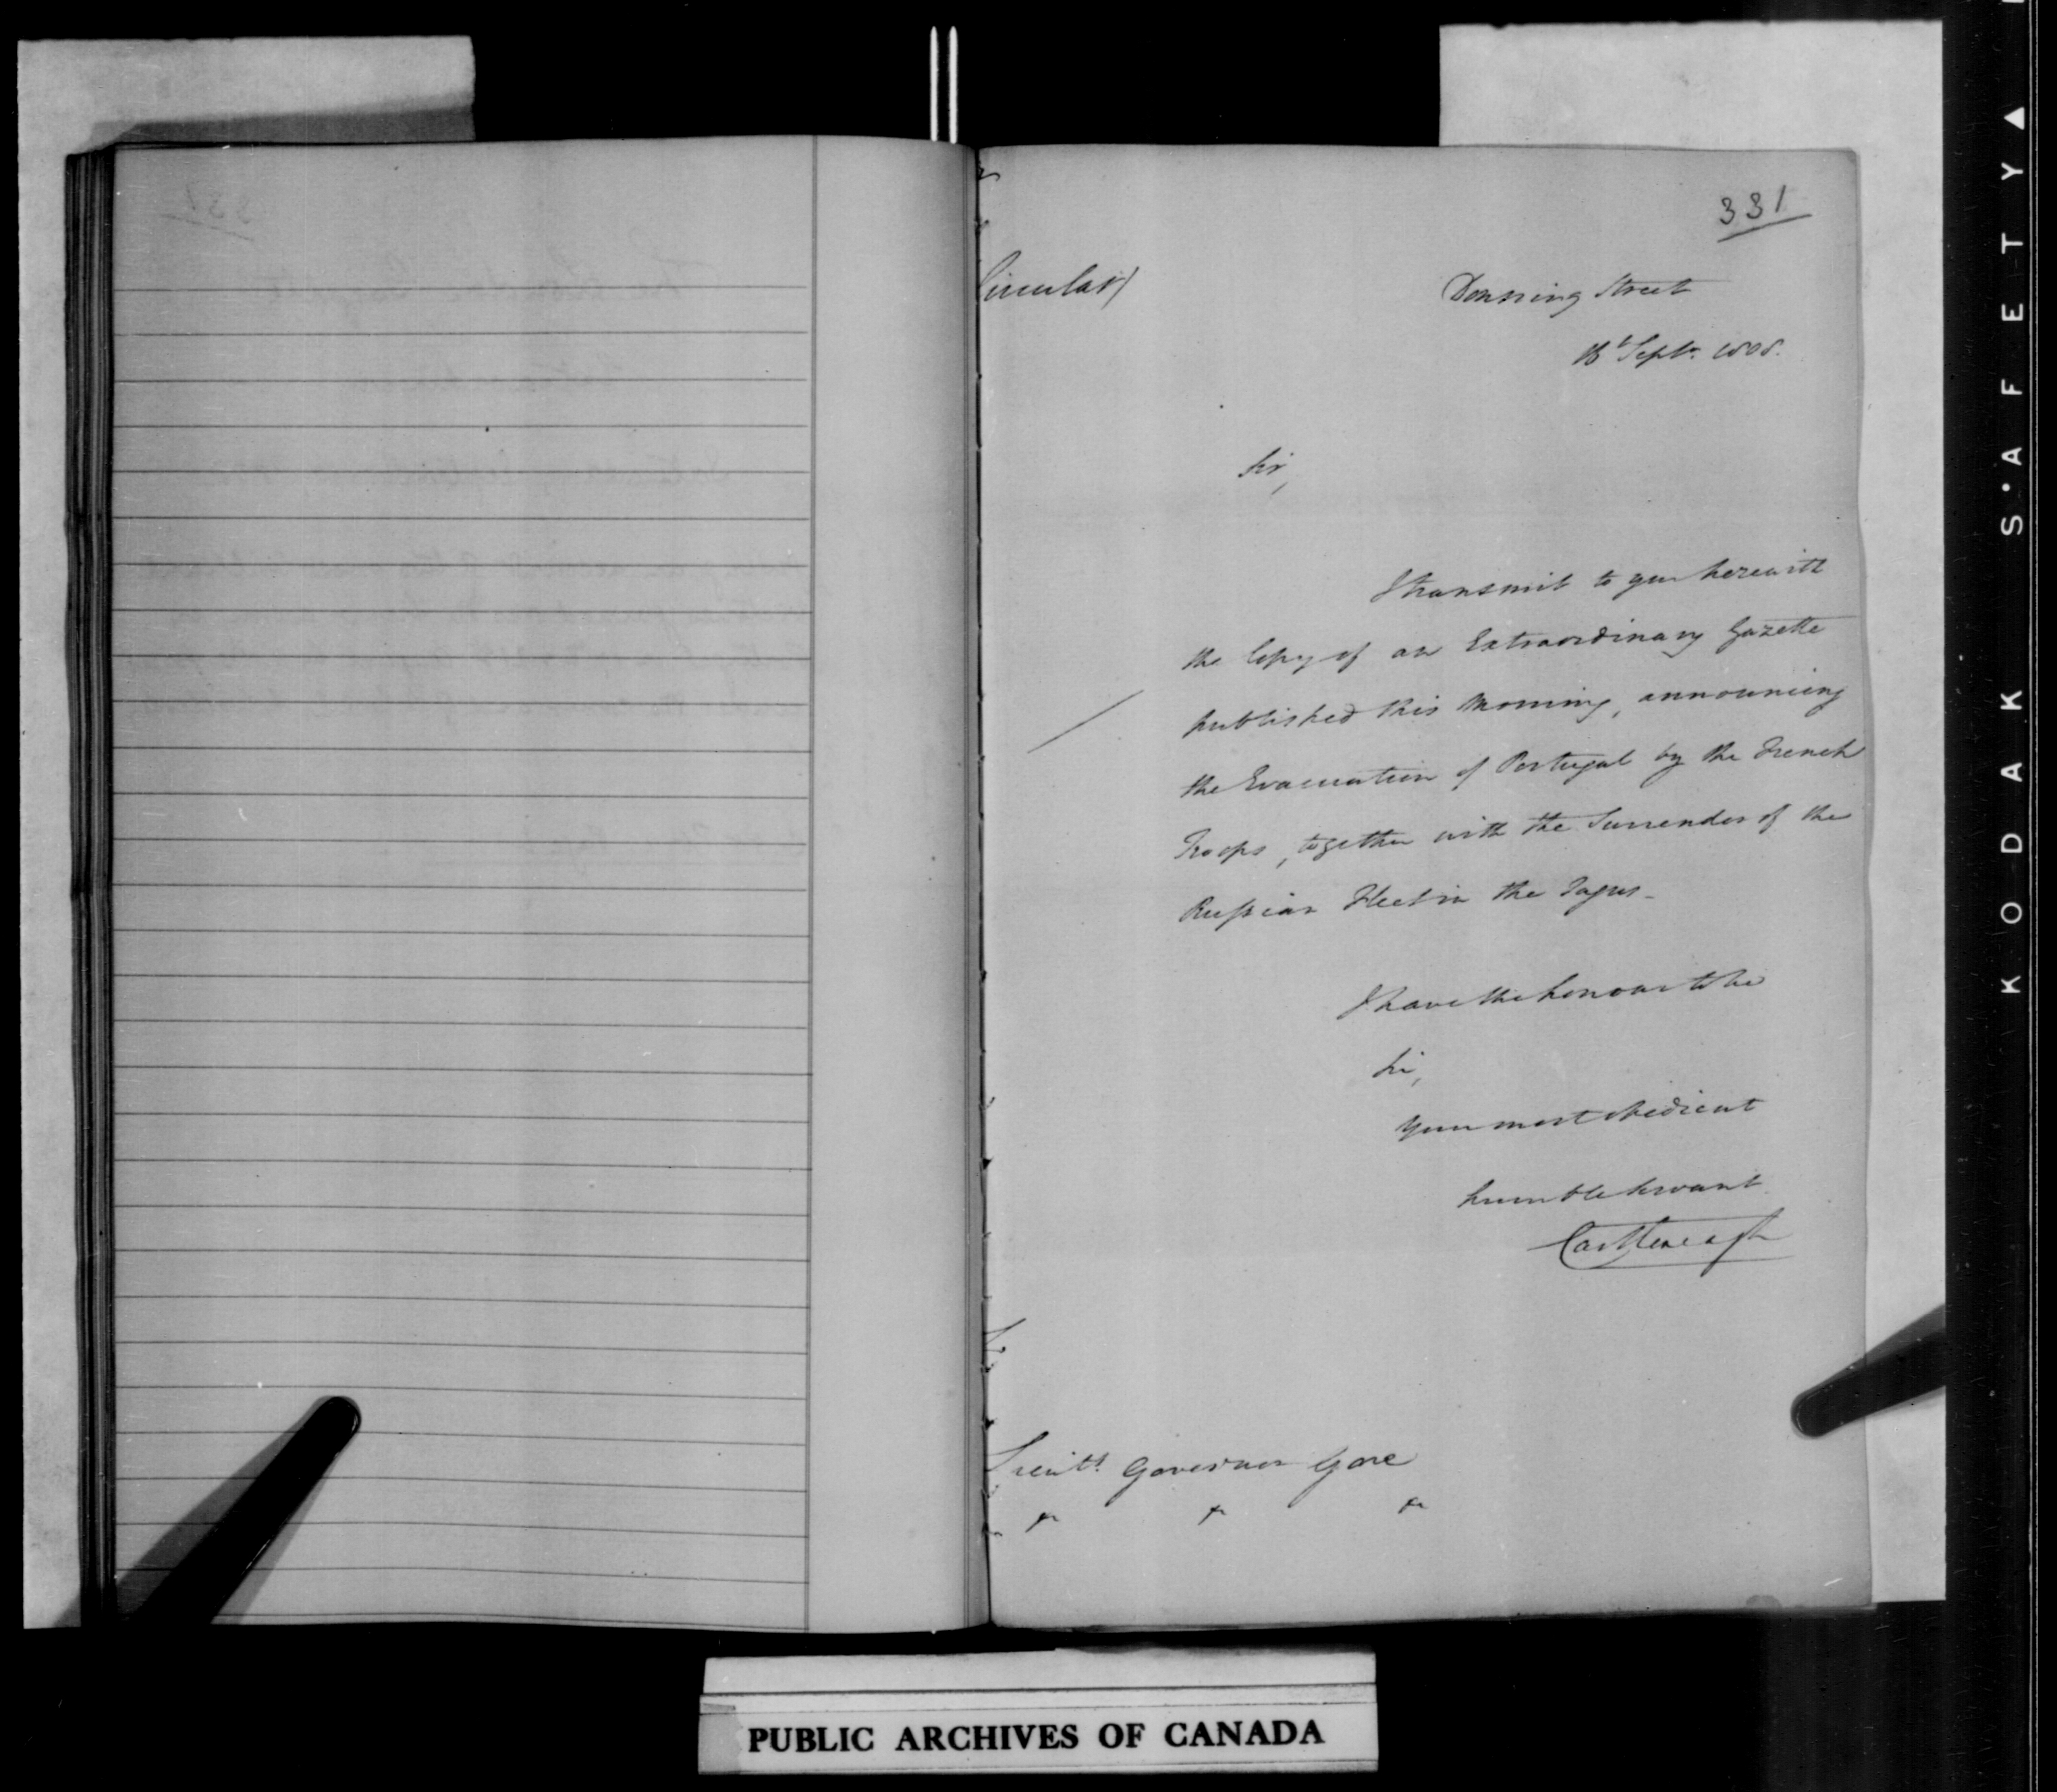 331
Circular)
Downing Street
16th Sept. 1808.
Sir,
I transmit to you herewith
the Copy of an Extraordinary Gazette
published this Morning, announcing
the Evacuation of Portugal by the French
Troops, together with the Surrender of the
Russian Fleet in the Tagus_
I have the honour to be
Sir,
Your most obedient
humble Servant
Castlereagh
Lieutt. Governor Gore
&c &c &c
PUBLIC ARCHIVES OF CANADA
KODAK S·AFETY▲